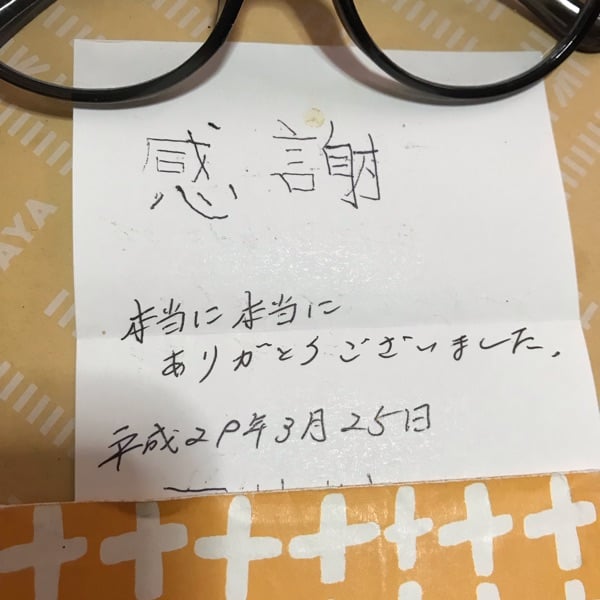 感謝
本当に本当に
ありがとうございました。
平成29年3月25日
AYA